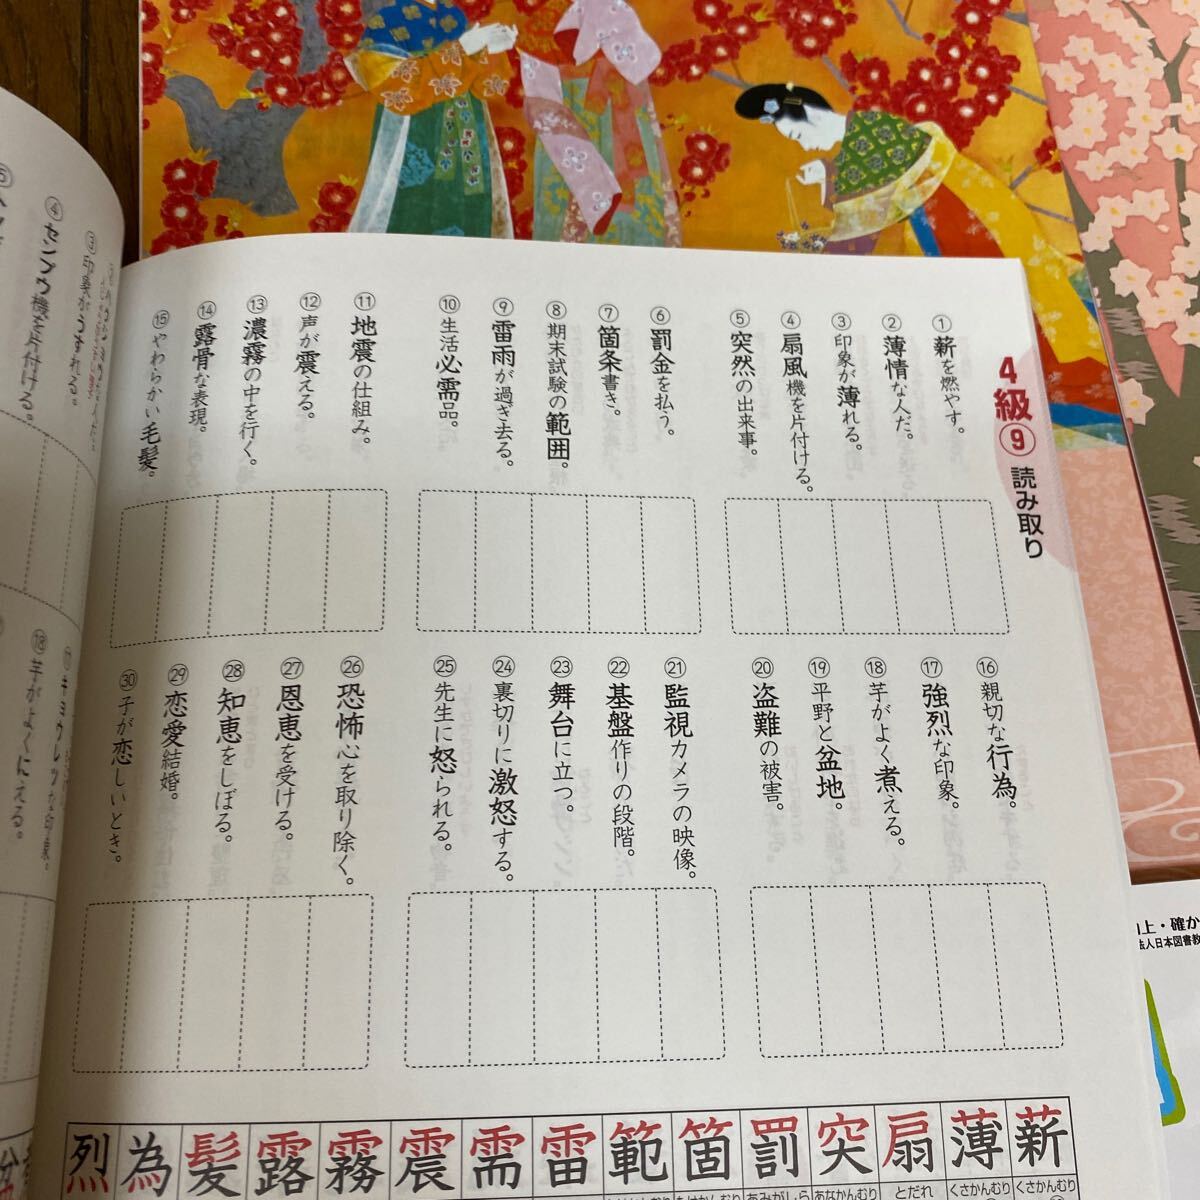 4級⑨ 読み取り
① 薪を燃やす。
② 薄情な人だ。
③ 印象が薄れる。
④ 扇風機を片付ける。
⑤ 突然の出来事。
⑥ 罰金を払う。
⑦ 箇条書き。
⑧ 期末試験の範囲。
⑨ 雷雨が過ぎ去る。
⑩ 生活必需品。
⑪ 地震の仕組み。
⑫ 声が震える。
⑬ 濃霧の中を行く。
⑭ 露骨な表現。
⑮ やわらかい毛髪。
⑯ 親切な行為。
⑰ 強烈な印象。
⑱ 芋がよく煮える。
⑲ 平野と盆地。
⑳ 盗難の被害。
㉑ 監視カメラの映像。
㉒ 基盤作りの段階。
㉓ 舞台に立つ。
㉔ 裏切りに激怒する。
㉕ 先生に怒られる。
㉖ 恐怖心を取り除く。
㉗ 恩恵を受ける。
㉘ 知恵をしぼる。
㉙ 恋愛結婚。
㉚ 子が恋しいとき。
薪 薄 扇 突 罰 箇 範 雷 需 震 霧 露 髪 為 烈
くさかんむり くさかんむり とだれ あなかんむり あみがしら
③ 印象がうすれる。
④ センプウ機を片付ける。
⑰ キョウレツな印象。
⑱ 芋がよくにえる。
向上・確か
法人日本図書教